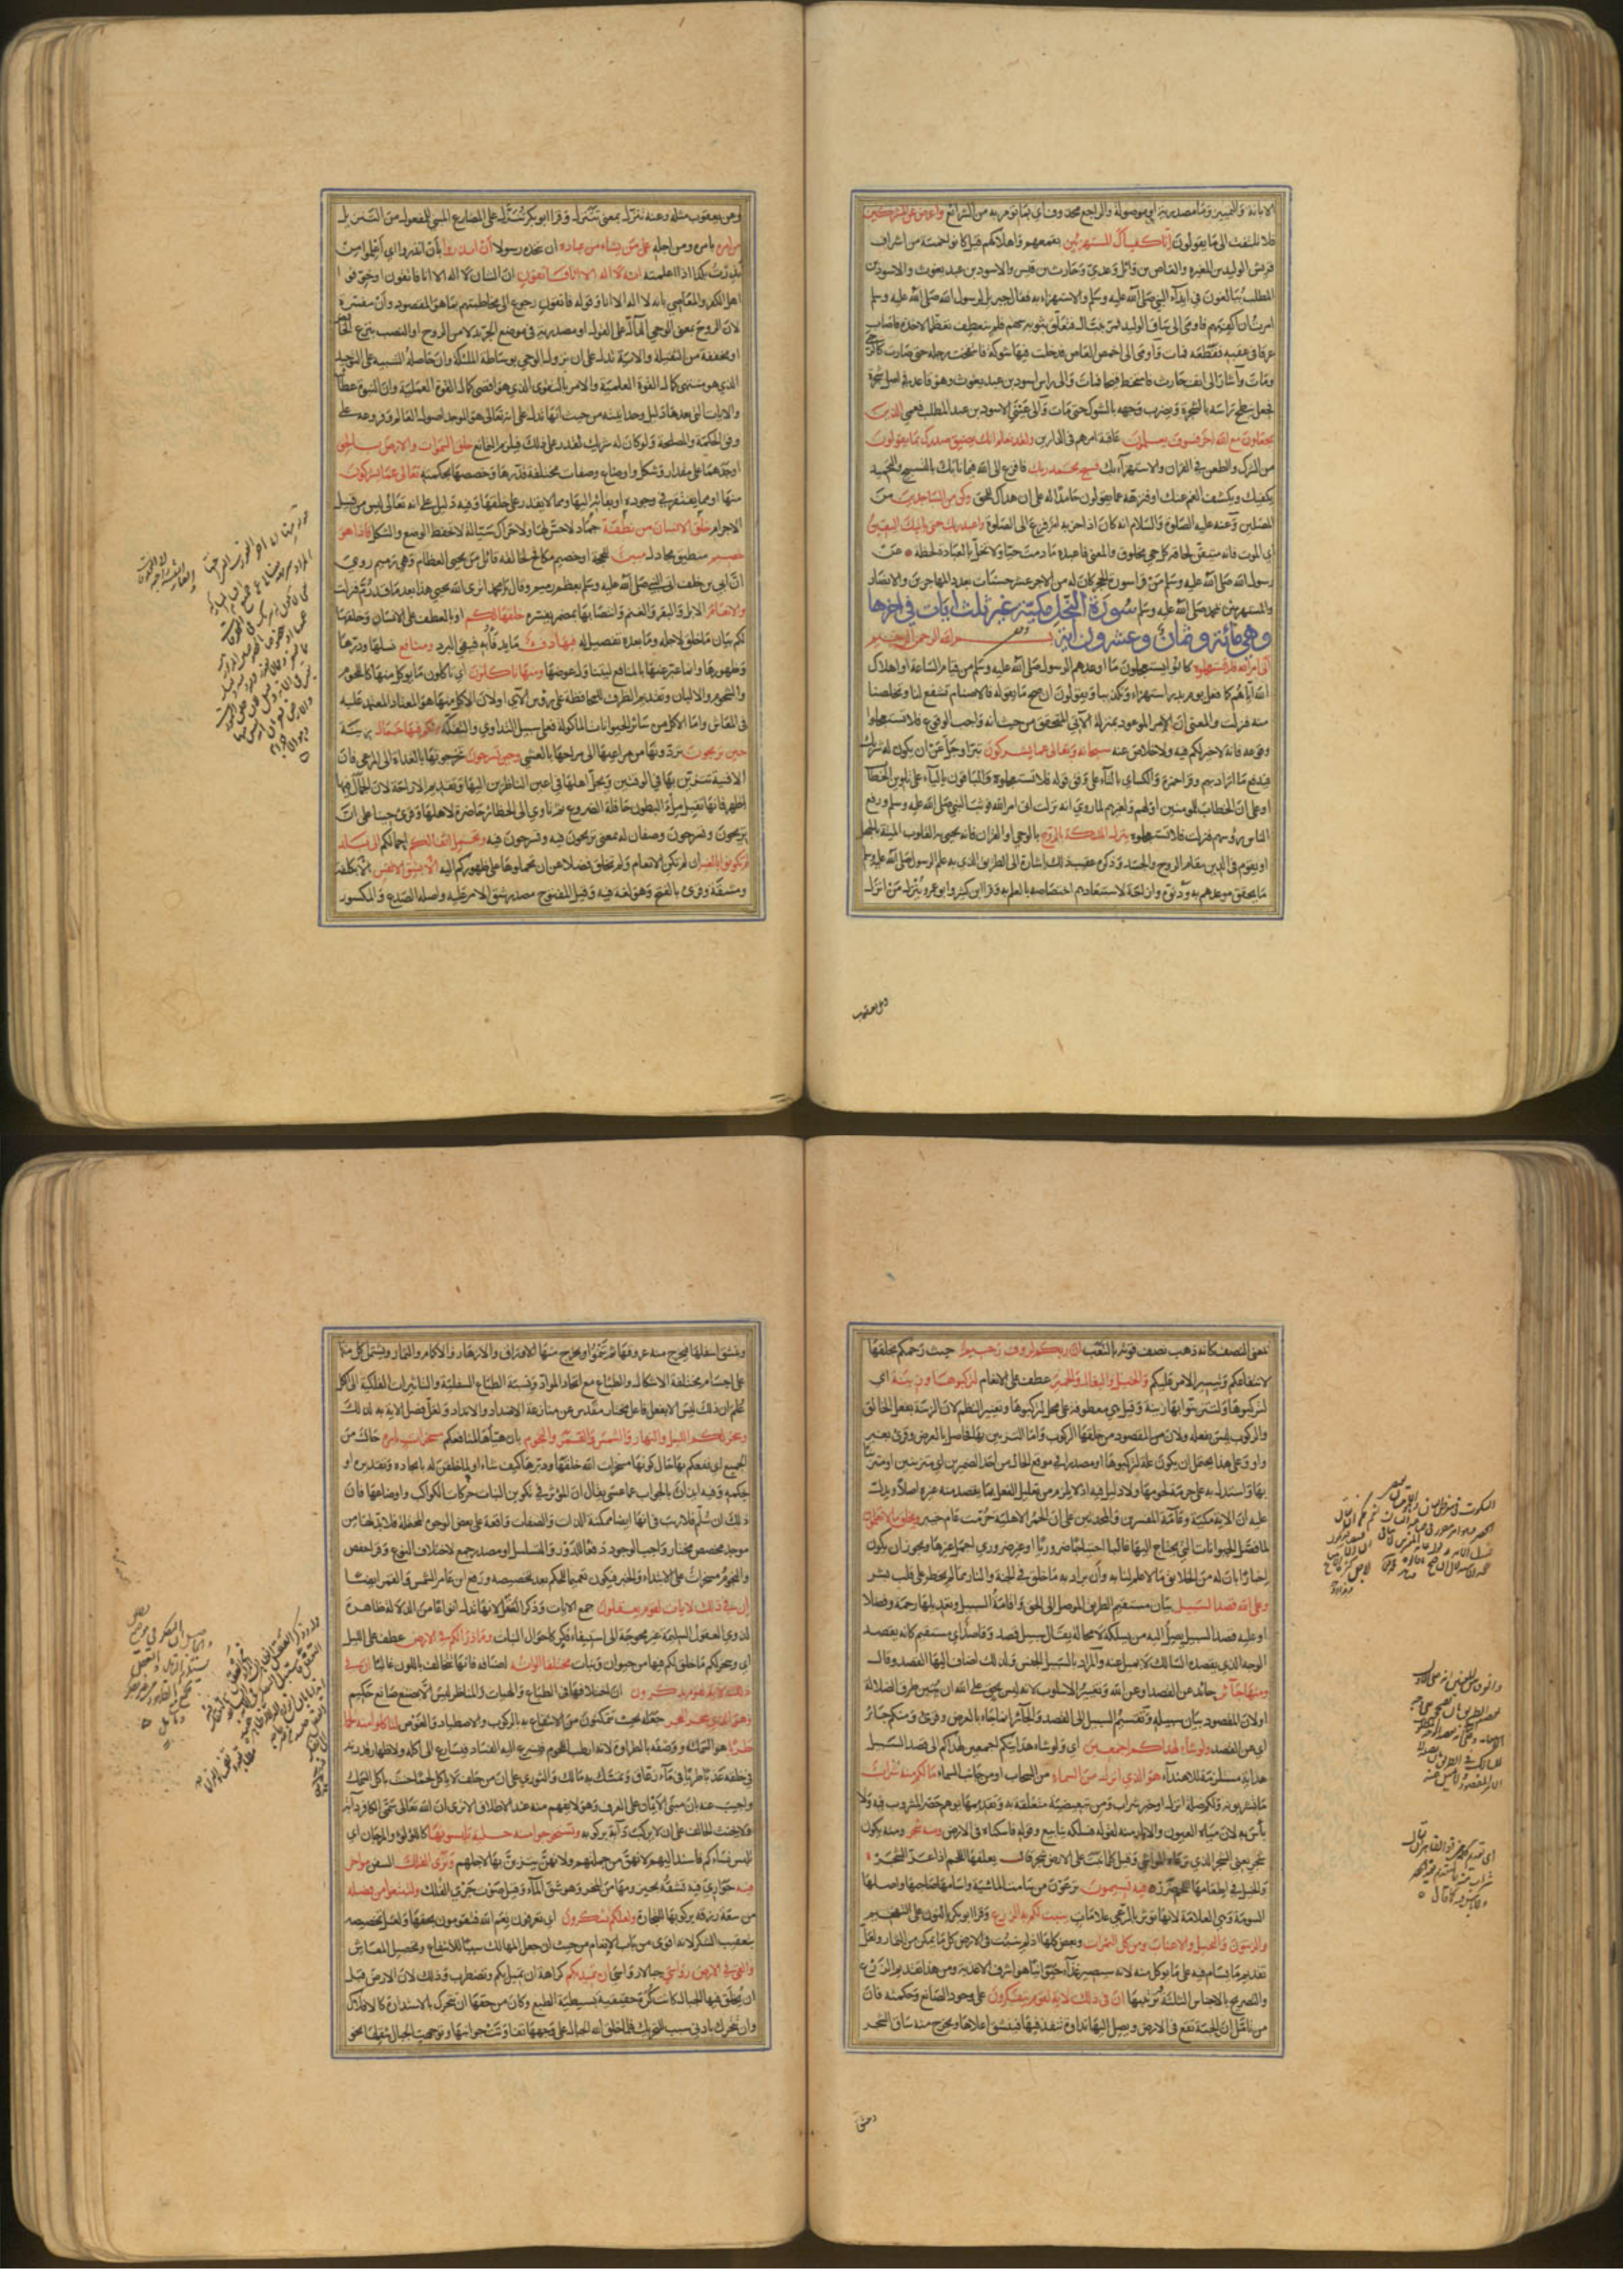 الابانة والتمييز وما مصدرية او موصولة والراجع محذوف اي بما تؤمر به من الشرائع واعرض عن المشركين
فلا تلتفت الى ما يقولون انا كفيناك المستهزئين بقمعهم واهلاكهم قيل كانوا خمسة من اشراف
قريش الوليد بن المغيرة والعاص بن وائل وعدي وحارث بن قيس والاسود بن عبد يغوث والاسود بن
المطلب يبالغون في ايذاء النبي صلى الله عليه وسلم والاستهزاء به فقال جبريل لرسول الله صلى الله عليه وسلم
امرت ان اكفيكهم فاومى الى ساق الوليد فمر بنبال فتعلق بثوبه سهم فلم ينعطف تعظما لاخذه فاصاب
عرقا في عقبه فقطعه فمات واومى الى اخمص العاص فدخلت فيها شوكة فانتفخت رجله حتى صارت كالرحى
ومات واشار الى انف حارث فامتخط قيحا فمات والى راس اسود بن عبد يغوث وهو قاعد في اصل شجرة
فجعل ينطح براسه بالشجرة ويضرب وجهه بالشوك حتى مات والى عيني الاسود بن عبد المطلب فعمي الذين
يجعلون مع الله الها اخر فسوف يعلمون عاقبة امرهم في الدارين ولقد نعلم انك يضيق صدرك بما يقولون
من الشرك والطعن في القران والاستهزاء بك فسبح بحمد ربك فافزع الى الله فيما نابك بالتسبيح والتحميد
يكفيك ويكشف الغم عنك او فنزهه عما يقولون حامدا له على ان هداك للحق وكن من الساجدين من
المصلين وعنه عليه الصلوة والسلام انه كان اذا حزبه امر فزع الى الصلوة واعبد ربك حتى ياتيك اليقين
اي الموت فانه متيقن لحاقه كل حي مخلوق والمعنى فاعبده ما دمت حيا ولا تخل بالعبادة لحظة عن
رسول الله صلى الله عليه وسلم من قرا سورة الحجر كان له من الاجر عشر حسنات بعدد المهاجرين والانصار
والمستهزئين بمحمد صلى الله عليه وسلم سورة النحل مكية غير ثلث ايات في اخرها
وهي مائة وثمان وعشرون اية بسم الله الرحمن الرحيم
اتى امر الله فلا تستعجلوه كانوا يستعجلون ما اوعدهم الرسول صلى الله عليه وسلم من قيام الساعة او اهلاك
الله اياهم كما فعل يوم بدر استهزاء وتكذيبا ويقولون ان صح ما يقوله فالاصنام تشفع لنا وتخلصنا
منه فنزلت والمعنى ان الامر الموعود بمنزلة الاتي المتحقق من حيث انه واجب الوقوع فلا تستعجلوا
وقوعه فانه لا خير لكم فيه ولا خلاص عنه سبحانه وتعالى عما يشركون تبرا وجل عن ان يكون له شريك
فيدفع ما اراد بهم وقرا حمزة والكسائي بالتاء على وفق قوله فلا تستعجلوه والباقون بالياء على تلوين الخطاب
او على ان الخطاب للمومنين او لهم ولغيرهم لما روي انه نزلت اتى امر الله فوثب النبي صلى الله عليه وسلم ورفع
الناس رؤسهم فنزلت فلا تستعجلوه ينزل الملئكة بالروح بالوحي او القران فانه يحيى به القلوب الميتة بالجهل
او يقوم في الدين مقام الروح في الجسد وذكره عقيب ذلك اشارة الى الطريق الذي به علم الرسول صلى الله عليه وسلم
ما تحقق موعدهم به ودنوه وازاحة لاستبعادهم اختصاصه بالعلم به وقرا ابن كثير وابو عمرو ينزل من انزل
وعن يعقوب
وعن يعقوب مثله وعنه تنزل بمعنى تتنزل وقرا ابو بكر تنزل على المضارع المبني للمفعول من التنزيل
من امره بامره ومن اجله على من يشاء من عباده ان يتخذه رسولا ان انذروا بان انذروا اي اعلموا من
نذرت بكذا اذا علمته انه لا اله الا انا فاتقون ان الشان لا اله الا انا فاتقون او خوفوا
اهل الكفر والمعاصي بانه لا اله الا انا وقوله فاتقون رجوع الى مخاطبتهم بما هو المقصود وان مفسرة
لان الروح بمعنى الوحي الدال على القول او مصدرية في موضع الجر بدلا من الروح او النصب بنزع الخافض
او مخففة من الثقيلة والاية تدل على ان نزول الوحي بوساطة الملئكة وان حاصله التنبيه على التوحيد
الذي هو منتهى كمال القوة العلمية والامر بالتقوى الذي هو اقصى كمال القوة العملية وان النبوة عطائية
والايات التي بعدها دليل وحدانيته من حيث انها تدل على انه تعالى هو الموجد لاصول العالم وفروعه على
وفق الحكمة والمصلحة ولو كان له شريك لقدر على ذلك فيلزم التمانع خلق السموات والارض بالحق
اوجدهما على مقدار وشكل واوضاع وصفات مختلفة قدرها وخصصها بحكمته تعالى عما يشركون
منها او مما يفتقر في وجوده او بقائه اليها ومما لا يقدر على خلقها وفيه دليل على انه تعالى ليس من قبيل
الاجرام خلق الانسان من نطفة جماد لا حس لها ولا حراك سيالة لا تحفظ الوضع والشكل فاذا هو
خصيم منطيق مجادل مبين للحجة او خصيم مكافح لخالقه قائل من يحيي العظام وهي رميم روي
ان ابي بن خلف اتى النبي صلى الله عليه وسلم بعظم رميم وقال يا محمد اترى الله يحيي هذا بعد ما قد رم فنزلت
والانعام الابل والبقر والغنم وانتصابها بمضمر يفسره خلقها لكم او بالعطف على الانسان وخلقها
لكم بيان ما خلق لاجله وما بعده تفصيل له فيها دفء ما يدفأ به فيقي البرد ومنافع نسلها ودرها
وظهورها وانما عبر عنها بالمنافع ليتناول عوضها ومنها تاكلون اي تاكلون ما يوكل منها كاللحوم
والشحوم والالبان وتقديم الظرف للمحافظة على رؤس الاي او لان الاكل منها هو المعتاد المعتمد عليه
في المعاش واما الاكل من سائر الحيوانات الماكولة فعلى سبيل التداوي والتفكه ولكم فيها جمال زينة
حين تريحون تردونها من مراعيها الى مراحها بالعشي وحين تسرحون تخرجونها بالغداة الى المرعى فان
الافنية تتزين بها في الوقتين ويجل اهلها في اعين الناظرين اليها وتقديم الاراحة لان الجمال فيها
اظهر فانها تقبل ملأى البطون حافلة الضروع ثم تاوي الى الحظائر حاضرة لاهلها وقرئ حينا على ان
تريحون وتسرحون وصفان له بمعنى تريحون فيه وتسرحون فيه وتحمل اثقالكم احمالكم الى بلد
لم تكونوا بالغيه ان لم تكن الانعام ولم تخلق فضلا عن ان تحملوها على ظهوركم اليه الا بشق الانفس الا بكلفة
ومشقة وقرئ بالفتح وهو لغة فيه وقيل المفتوح مصدر شق الامر عليه واصله الصدع والمكسور
بمعنى النصف كانه ذهب نصف قوته بالتعب ان ربكم لرؤف رحيم حيث رحمكم بخلقها
لانتفاعكم وتيسير الامر عليكم والخيل والبغال والحمير عطف على الانعام لتركبوها وزينة اي
لتركبوها ولتتزينوا بها زينة وقيل هي معطوفة على محل لتركبوها وتغيير النظم لان الزينة بفعل الخالق
والركوب ليس بفعله ولان المقصود من خلقها الركوب واما التزيين بها فحاصل بالعرض وقرئ بغير
واو وعلى هذا يحتمل ان يكون علة لتركبوها او مصدرا في موقع الحال من احد الضميرين اي متزينين او متزينا
بها واستدل به على حرمة لحومها ولا دليل فيه اذ لا يلزم من تعليل الفعل بما يقصد منه غيره اصلا ويدل
عليه ان الاية مكية وعامة المفسرين والمحدثين على ان الحمر الاهلية حرمت عام خيبر ويخلق ما لا تعلمون
لما فصل الحيوانات التي يحتاج اليها غالبا احتياجا ضروريا او غير ضروري اجمل غيرها ويجوز ان يكون
اخبارا بان له من الخلائق ما لا علم لنا به وان يراد به ما خلق في الجنة والنار مما لم يخطر على قلب بشر
وعلى الله قصد السبيل بيان مستقيم الطريق الموصل الى الحق او اقامة السبيل وتعديلها رحمة وفضلا
او عليه قصد السبيل يصل اليه من يسلكه لا محالة يقال سبيل قصد وقاصد اي مستقيم كانه يقصد
الوجه الذي يقصده السالك لا يميل عنه والمراد بالسبيل الجنس ولذلك اضاف اليها القصد وقال
ومنها جائر حائد عن القصد او عن الله وتغيير الاسلوب لانه ليس بحق على الله ان يبين طرق الضلالة
او لان المقصود بيان سبيله وتقسيم السبيل الى القصد والجائر انما جاء بالعرض وقرئ ومنكم جائر
اي عن القصد ولو شاء لهداكم اجمعين اي ولو شاء هدايتكم اجمعين لهداكم الى قصد السبيل
هداية مستلزمة للاهتداء هو الذي انزل من السماء من السحاب او من جانب السماء ماء لكم منه شراب
ما تشربونه ولكم صلة انزل او خبر شراب ومن تبعيضية متعلقة به وتقديمها يوهم حصر المشروب فيه ولا
باس به لان مياه العيون والابار منه لقوله فسلكه ينابيع وقوله فاسكناه في الارض ومنه شجر ومنه يكون
شجر يعني الشجر الذي ترعاه المواشي وقيل كل ما نبت على الارض شجر قال يعلفها اللحم اذا عز الشجر
والخيل في اطعامها اللحم ضرر فيه تسيمون ترعون من سامت الماشية واسامها صاحبها واصلها
السومة وهي العلامة لانها توثر بالرعي علامات ينبت لكم به الزرع وقرا ابو بكر بالنون على التفخيم
والزيتون والنخيل والاعناب ومن كل الثمرات وبعض كلها اذ لم ينبت في الارض كل ما يمكن من الثمار ولعل
تقديم ما يسام فيه على ما يوكل منه لانه سيصير غذاء حيوانيا هو اشرف الاغذية ومن هذا تقديم الزرع
والتصريح بالاجناس الثلثة وترتيبها ان في ذلك لاية لقوم يتفكرون على وجود الصانع وحكمته فان
من تامل ان الحبة تقع في الارض ويصل اليها نداوة تنفذ فيها فينشق اعلاها ويخرج منه ساق الشجر
وينشق اسفلها فيخرج منه عروقها ثم تنمو ويخرج منها الاوراق والازهار والاكمام والثمار ويشتمل كل منها
على اجسام مختلفة الاشكال والطباع مع اتحاد المواد ونسبة الطبائع السفلية والتاثيرات الفلكية الى الكل
علم ان ذلك ليس الا بفعل فاعل مختار مقدس عن منازعة الاضداد والانداد ولعل فصل الاية به لذلك
وسخر لكم الليل والنهار والشمس والقمر والنجوم بان هيأها لمنافعكم مسخرات بامره حال من
الجميع اي نفعكم بها حال كونها مسخرات الله خلقها ودبرها كيف شاء او لما خلقن له بايجاده وتقديره او
بحكمه وفيه ايذان بالجواب عما عسى يقال ان المؤثر في تكوين النبات حركات الكواكب واوضاعها فان
ذلك ان سلم فلا ريب في انها ايضا ممكنة الذات والصفات واقعة على بعض الوجوه المحتملة فلا بد لها من
موجد مخصص مختار واجب الوجود دفعا للدور والتسلسل او مصدر جمع لاختلاف النوع وقرا حفص
والنجوم مسخرات على الابتداء والخبر فيكون تعميما للحكم بعد تخصيصه ورفع ابن عامر الشمس والقمر ايضا
ان في ذلك لايات لقوم يعقلون جمع الايات وذكر العقل لانها تدل انواعا من الدلالة ظاهرة
لذوي العقول السليمة غير محوجة الى استيفاء فكر كاحوال النبات وما ذرأ لكم في الارض عطف على الليل
اي وسخر لكم ما خلق لكم فيها من حيوان ونبات مختلفا الوانه اصنافه فانها تتخالف باللون غالبا ان في
ذلك لاية لقوم يذكرون ان اختلافها في الطباع والهيات والمناظر ليس الا بصنع صانع حكيم
وهو الذي سخر البحر جعله بحيث تتمكنون من الانتفاع به بالركوب والاصطياد والغوص لتاكلوا منه لحما
طريا هو السمك ووصفه بالطراوة لانه ارطب اللحوم فيسرع اليه الفساد فيسارع الى اكله ولاظهار قدرته
في خلقه عذبا طريا في ماء زعاق وتمسك به مالك والثوري على ان من حلف لا ياكل لحما حنث باكل السمك
واجيب عنه بان مبنى الايمان على العرف وهو لا يفهم منه عند الاطلاق الا ترى ان الله تعالى سمى الكافر دابة
ولا يحنث الحالف على ان لا يركب دابة بركوبه وتستخرجوا منه حلية تلبسونها كاللؤلؤ والمرجان اي
تلبس نساؤكم فاسند اليهم لانهن من جملتهم ولانهن يتزين بها لاجلهم وترى الفلك السفن مواخر
فيه جواري فيه تشقه بحيزومها من المخر وهو شق الماء وقيل صوت جري الفلك ولتبتغوا من فضله
من سعة رزقه بركوبها للتجارة ولعلكم تشكرون اي تعرفون نعم الله فتقومون بحقها ولعل تخصيصه
بتعقيب الشكر لانه اقوى من باب الانعام من حيث ان جعل المهالك سببا للانتفاع وتحصيل المعاش
والقى في الارض رواسي جبالا رواسي ان تميد بكم كراهة ان تميل بكم وتضطرب وذلك لان الارض قبل
ان يخلق فيها الجبال كانت كرة خفيفة بسيطة الطبع وكان من حقها ان تتحرك بالاستدارة كالافلاك
وان تتحرك بادنى سبب للتحريك فلما خلق الله الجبال على وجهها تفاوتت جوانبها وتوجهت الجبال بثقلها نحو